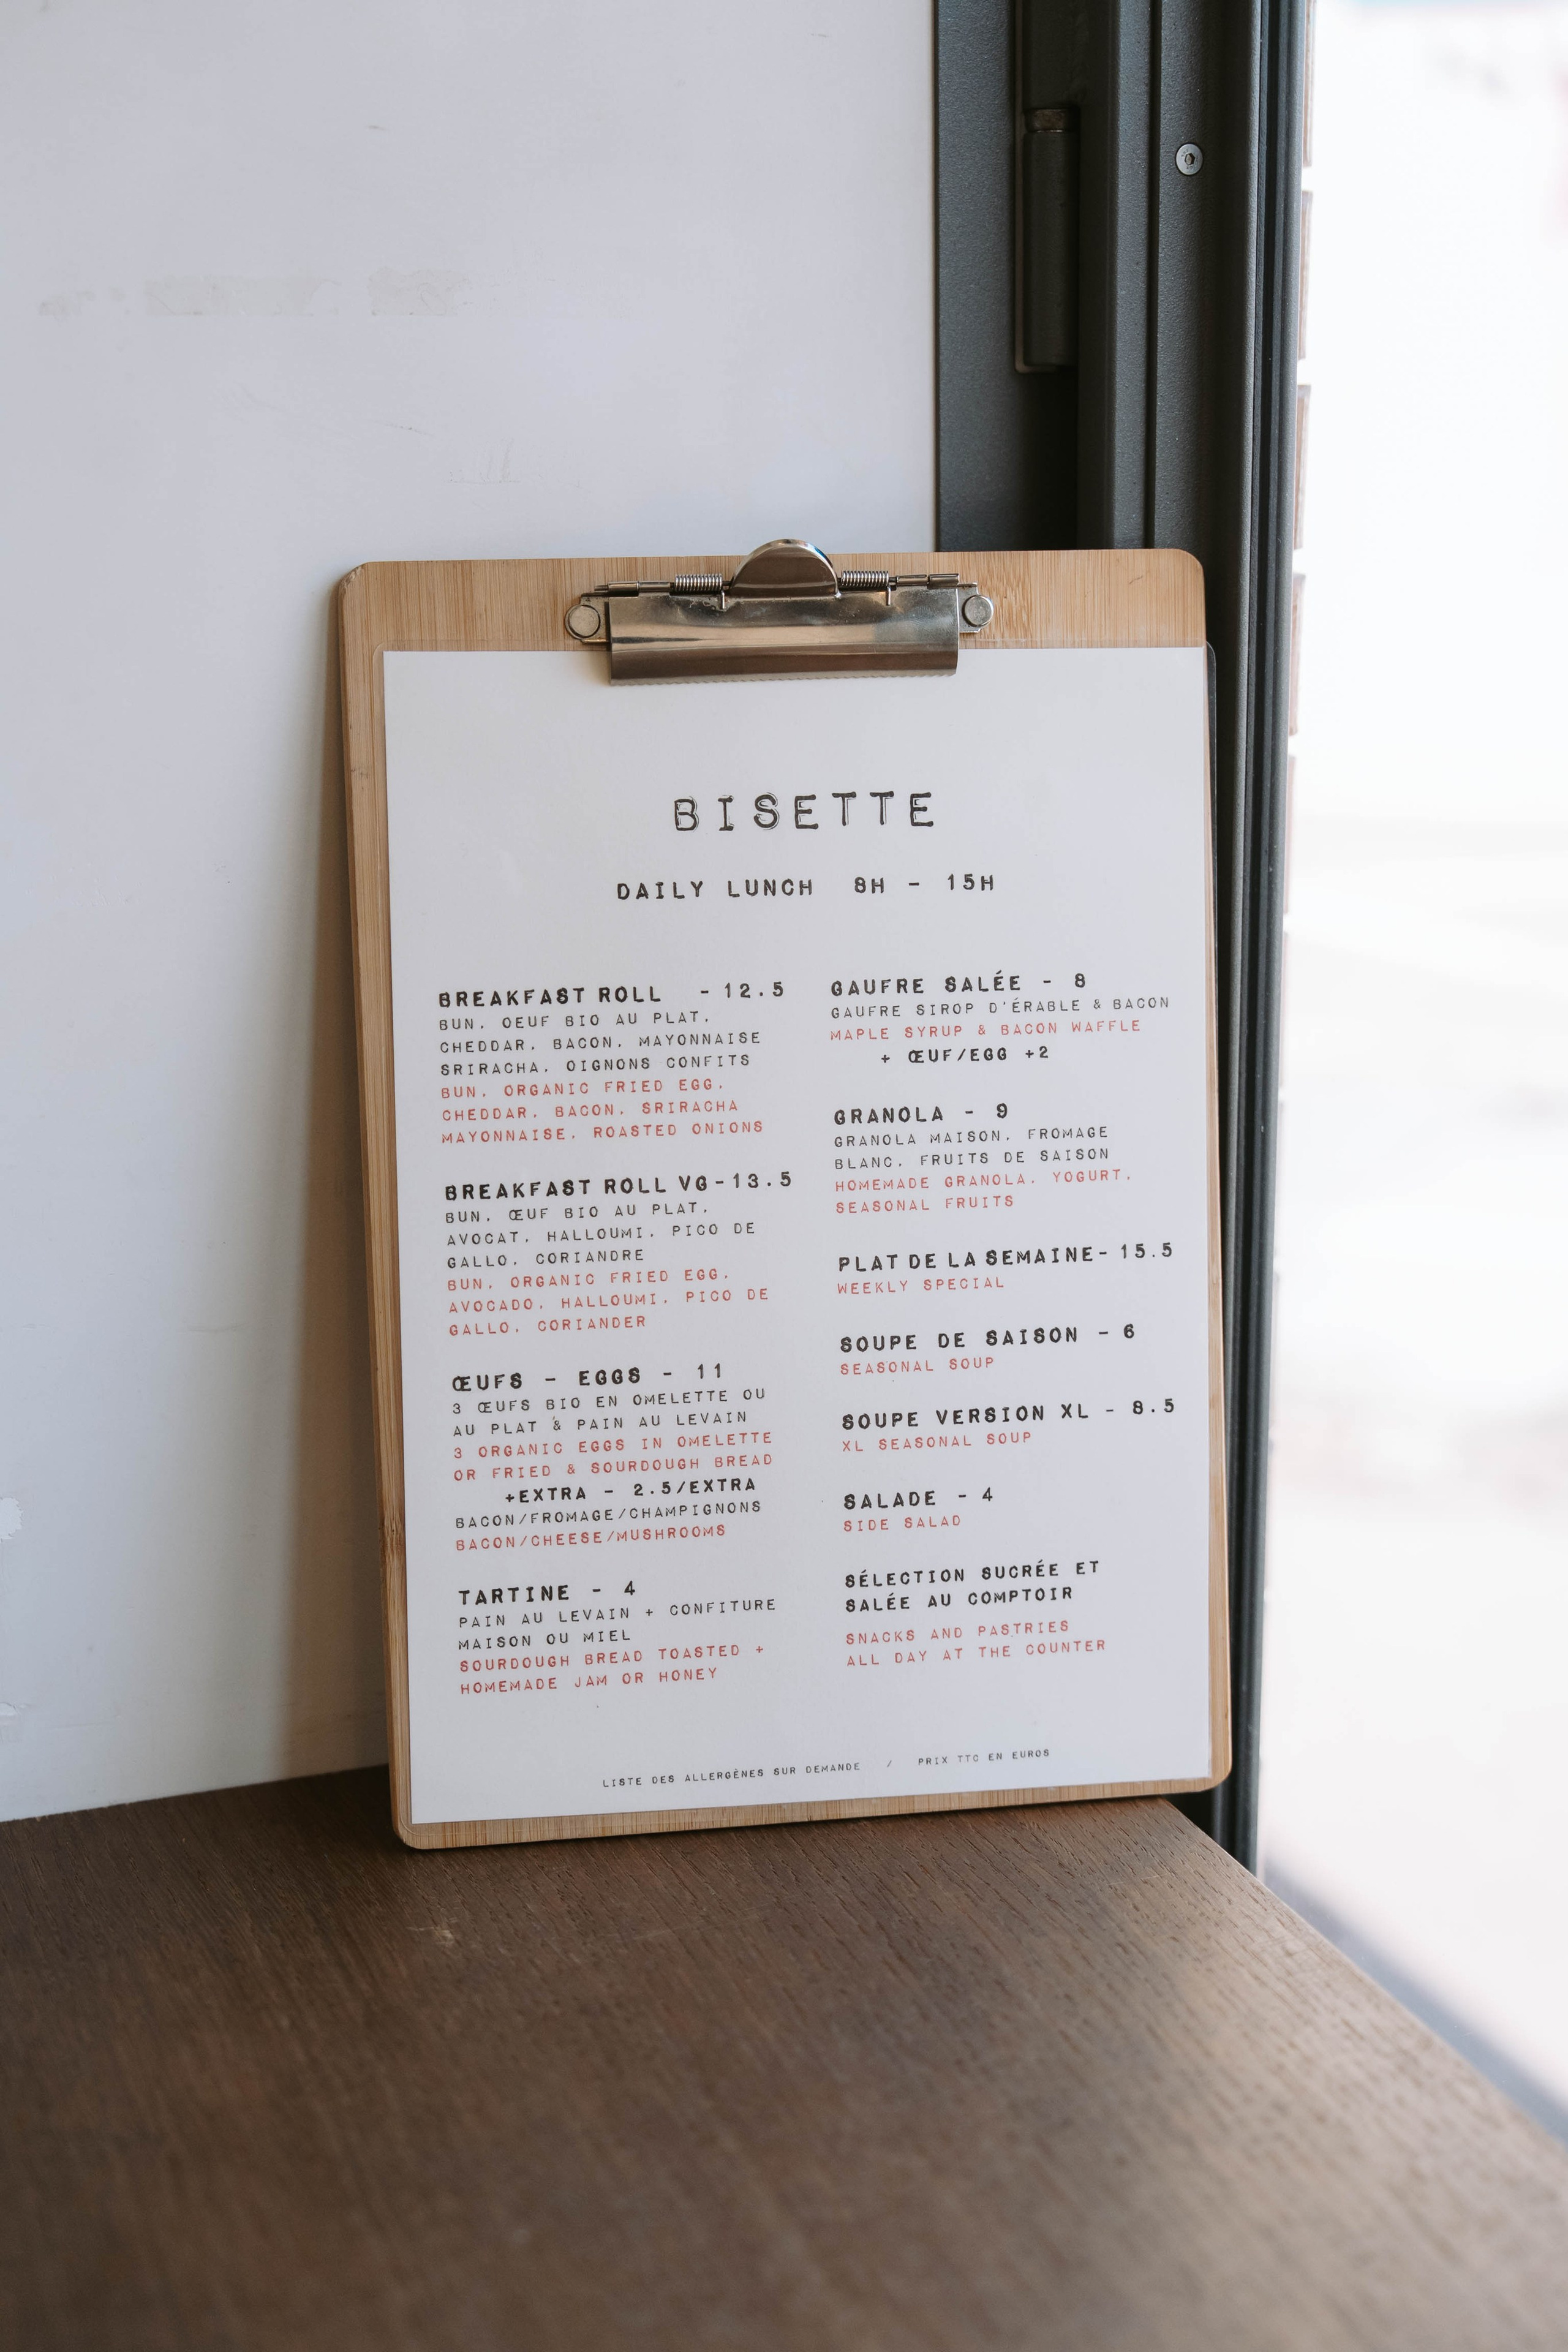 BISETTE
DAILY LUNCH 8H - 15H
BREAKFAST ROLL - 12.5
BUN, OEUF BIO AU PLAT,
CHEDDAR, BACON, MAYONNAISE
SRIRACHA, OIGNONS CONFITS
BUN, ORGANIC FRIED EGG,
CHEDDAR, BACON, SRIRACHA
MAYONNAISE, ROASTED ONIONS
BREAKFAST ROLL VG - 13.5
BUN, ŒUF BIO AU PLAT,
AVOCAT, HALLOUMI, PICO DE
GALLO, CORIANDRE
BUN, ORGANIC FRIED EGG,
AVOCADO, HALLOUMI, PICO DE
GALLO, CORIANDER
ŒUFS - EGGS - 11
3 ŒUFS BIO EN OMELETTE OU
AU PLAT & PAIN AU LEVAIN
3 ORGANIC EGGS IN OMELETTE
OR FRIED & SOURDOUGH BREAD
+EXTRA - 2.5/EXTRA
BACON/FROMAGE/CHAMPIGNONS
BACON/CHEESE/MUSHROOMS
TARTINE - 4
PAIN AU LEVAIN + CONFITURE
MAISON OU MIEL
SOURDOUGH BREAD TOASTED +
HOMEMADE JAM OR HONEY
GAUFRE SALÉE - 8
GAUFRE SIROP D'ÉRABLE & BACON
MAPLE SYRUP & BACON WAFFLE
+ ŒUF/EGG +2
GRANOLA - 9
GRANOLA MAISON, FROMAGE
BLANC, FRUITS DE SAISON
HOMEMADE GRANOLA, YOGURT,
SEASONAL FRUITS
PLAT DE LA SEMAINE - 15.5
WEEKLY SPECIAL
SOUPE DE SAISON - 6
SEASONAL SOUP
SOUPE VERSION XL - 8.5
XL SEASONAL SOUP
SALADE - 4
SIDE SALAD
SÉLECTION SUCRÉE ET
SALÉE AU COMPTOIR
SNACKS AND PASTRIES
ALL DAY AT THE COUNTER
LISTE DES ALLERGÈNES SUR DEMANDE / PRIX TTC EN EUROS